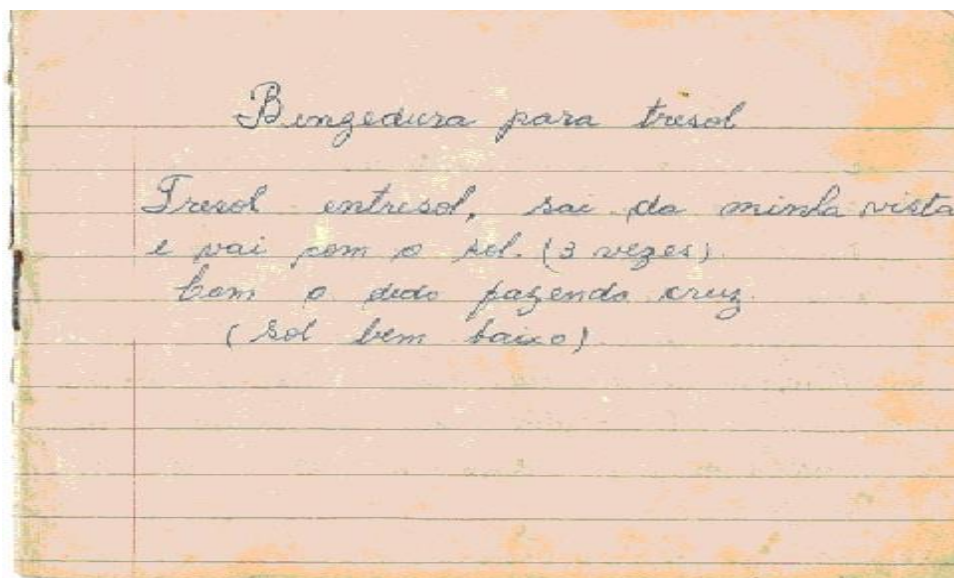 Bengedura para tresol
Tresol entresol, sai da minha vista
e vai com o sol. (3 vezes)
Com o dedo fazendo cruz
(sol bem baixo)